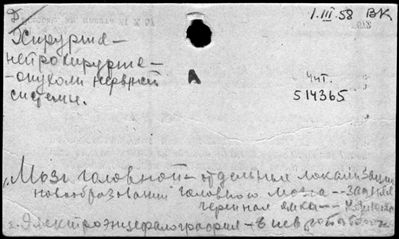 1.III.58 ВК
Хирургия –
нейрохирургия –
– опухоли нервной
системы.
А
Чит.
514365
„Мозг головной – отдельные локализации
новообразований головного мозга – задняя
черепная ямка
„Электроэнцефалография – в невропатологии